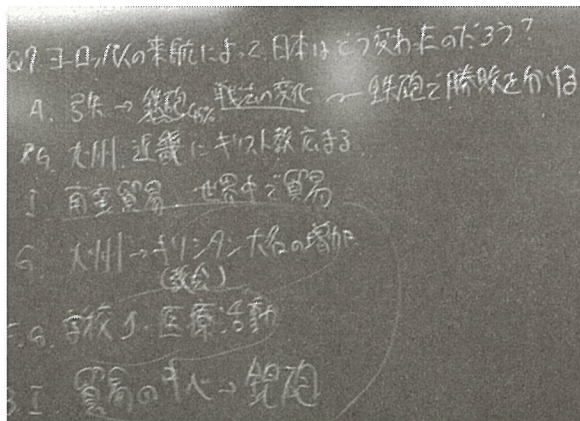 Q7. ヨーロッパ人の来航によって、日本はどう変わったのだろう?
A. 弓矢 → 鉄砲 戦法の変化 ― 鉄砲で勝敗を分ける
G. 九州、近畿にキリスト教広まる
I. 南蛮貿易. 世界中で貿易
G. 九州→キリシタン大名の増加
(教会)
G. 学校 医療活動
I. 貿易の → 鉄砲